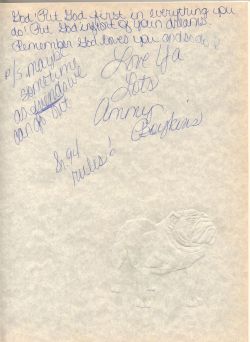 God! Put God first in everything you
do! Put God infront of your dreams.
Remember God loves you and so do I!
P/S maybe
sometime
as friends we
can go out
Love Ya
Lots
Ammy
Boykins
Sr. 94
rules!